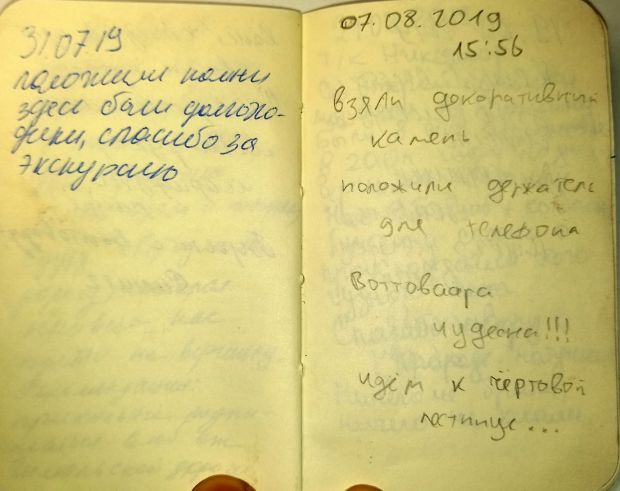 31.07.19
положили камни
здесь были дольхо-
дики, спасибо за
экскурсию
07.08.2019
15:56
взяли декоративный
камень
положили держатель
для телефона
Воттоваара
чудесна!!!
идём к чёртовой
лестнице...